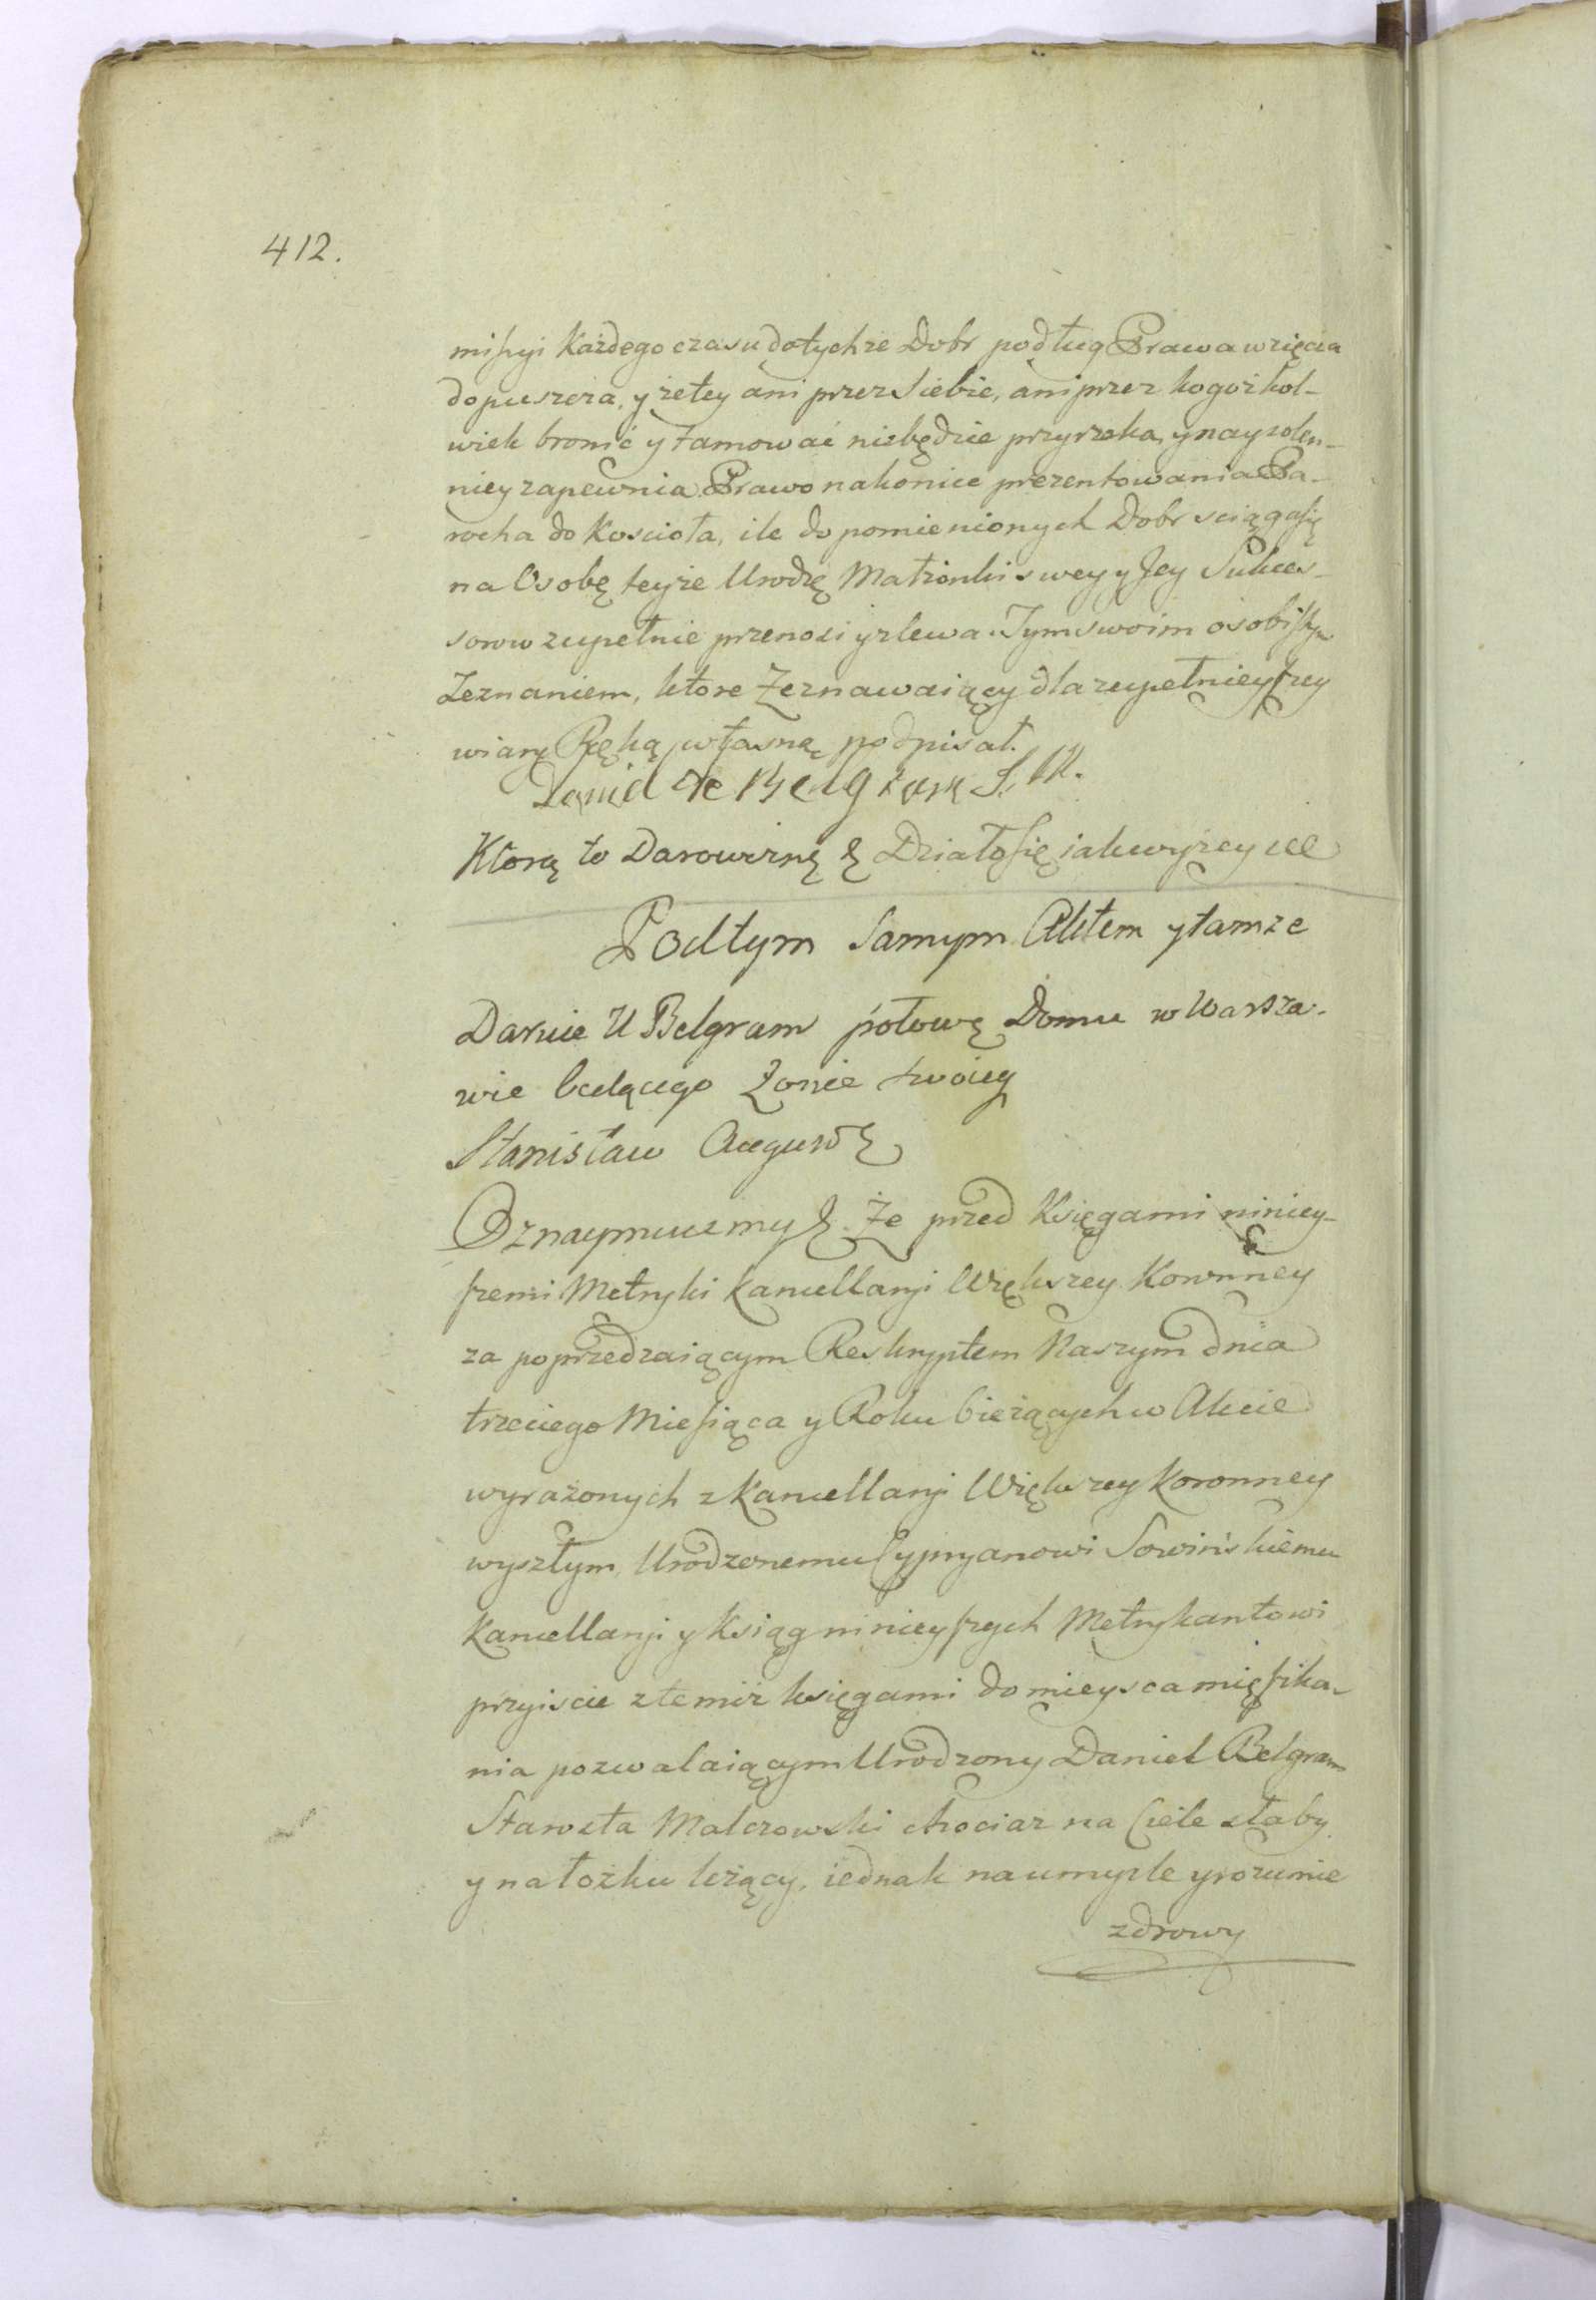 412.
missyi każdego czasu do tychże Dobr podług Prawa wzięcia
dopuszcza, y że tey ani przez siebie, ani przez kogożkol-
wiek bronić y tamować niebędzie przyrzeka, y nayzolen-
niey zapewnia. Prawo nakoniec prezentowania Pa-
rocha do Kościoła, ile do pomienionych Dobr sciąga się
na Osobę teyże Urodzę Małżonki swey y Jey Sukces-
sorow zupełnie przenosi y zlewa. Tym swoim osobistym
Zeznaniem, ktore Zeznawaiący dla zupełnieyszey
wiary Ręką własną podpisał.
Daniel de Belgram S. M.
Ktorą to Darowiznę & Działo się iak wyżey
Pod tym samym Aktem y tamże
Daruie U Belgram połowę Domu w Warsza-
wie będącego Żonie swoiey
Stanisław August &
Oznaymuiemy &. Że przed Księgami niniey-
szemi Metryki Kancellaryi Większey Koronney
za poprzedzaiącym Reskryptem Naszym dnia
trzeciego Miesiąca y Roku bieżących w Akcie
wyrażonych z Kancellaryi Większey Koronney
wyszłym, Urodzonemu Cypryanowi Sowińskiemu
Kancellaryi y Ksiąg ninieyszych Metrykantowi
przyiscie z temiż księgami do mieysca mięszka-
nia pozwalaiącym Urodzony Daniel Belgram
Starosta Malczowski chociaż na Ciele słaby
y na łożku leżący, iednak na umyśle y rozumie
zdrowy